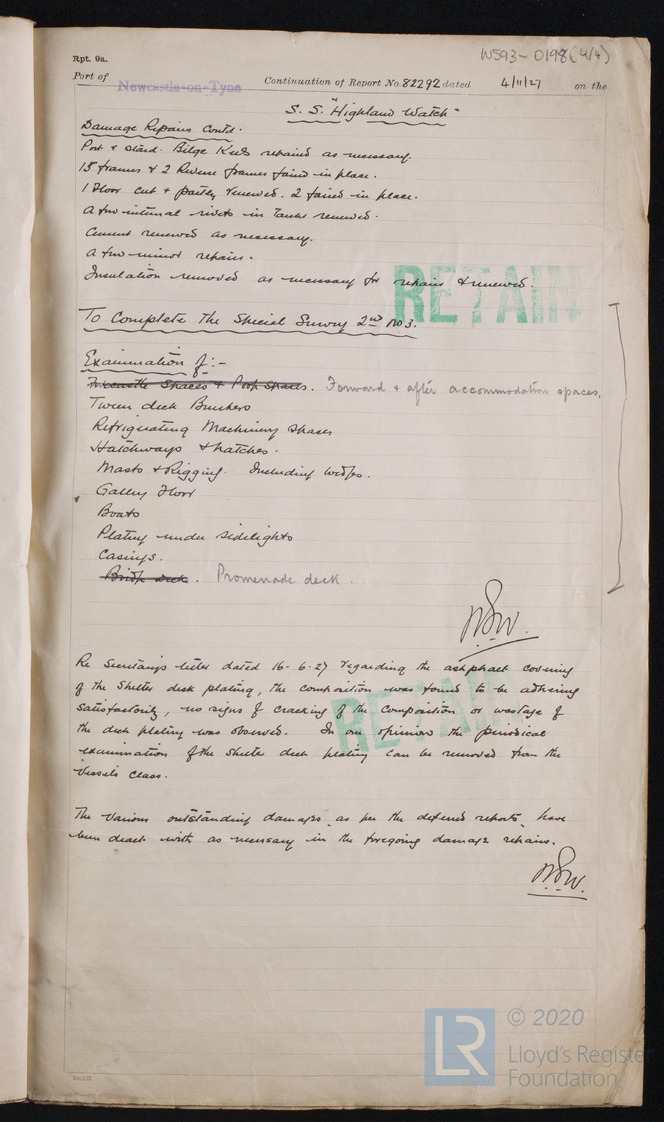 W593-0198 (4/4)
Rpt. 9a.
Port of Newcastle-on-Tyne Continuation of Report No. 82292 dated 4/11/27 on the
S.S. "Highland Watch"
Damage Repairs Contd.
Port & Stard. Bilge Keels repaired as necessary.
15 frames & 2 Reverse frames faired in place.
1 Floor cut & partly renewed. 2 faired in place.
A few internal rivets in Tanks renewed.
Cement renewed as necessary.
A few minor repairs.
Insulation removed as necessary for repairs & renewed.
RETAIN
To Complete The Special Survey 2nd No 3.
Examination of:-
Forecastle Spaces & Poop Spaces. Forward & after accommodation spaces.
Tween deck Bunkers
Refrigerating Machinery Spaces
Hatchways & hatches.
Masts & Rigging. Including Wedges.
Galley Floor
Boats
Plating under sidelights
Casings.
Bridge deck. Promenade deck.
Re Secretary's letter dated 16-6-27 regarding the asphalt covering
of the Shelter deck plating, the composition was found to be adhering
satisfactorily, no signs of cracking of the composition or wastage of
the deck plating was observed. In our opinion the periodical
examination of the Shelter deck plating can be removed from the
Vessels Class.
RETAIN
The Various outstanding damages as per the deferred reports, have
been dealt with as necessary in the foregoing damage repairs.
LR
© 2020
Lloyd's Register
Foundation